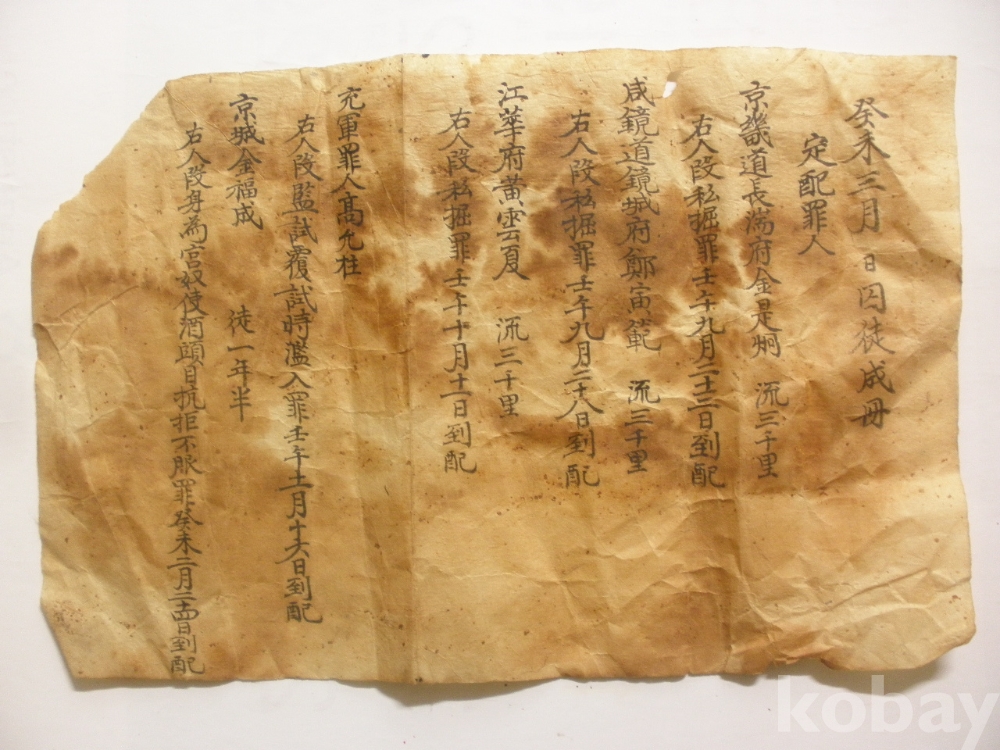 癸未三月 日囚徒成册
定配罪人
京畿道長湍府金是炯 流三千里
右人段私掘罪壬午九月二十三日到配
咸鏡道鏡城府鄭寅範 流三千里
右人段私掘罪壬午九月二十八日到配
江華府黃雲夏 流三千里
右人段私掘罪壬午十月十一日到配
充軍罪人高允柱
右人段監試覆試時濫入罪壬午十一月十六日到配
京城金福成 徒一年半
右人段身為官奴侵酒頭目抗拒不服罪癸未二月二十四日到配
kobay